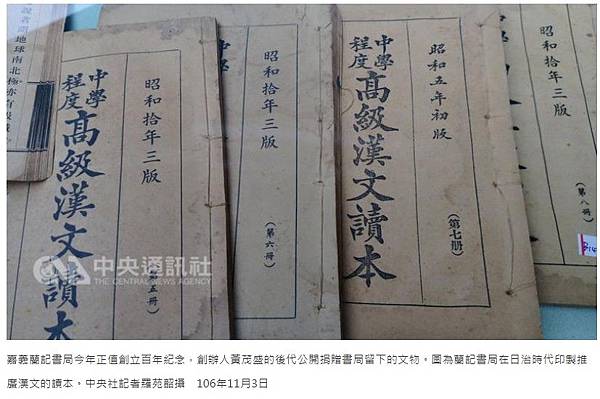 地球南北極亦有
昭和拾年三版
中學
程度
高級漢文讀本
五冊)
昭和拾年三版
(第六冊)
中學
昭和五年初版
中學
程度
高級漢文讀本
(第七冊)
昭和拾年三版
(第八冊)
中央通訊社
THE CENTRAL NEWS AGENCY
嘉義蘭記書局今年正值創立百年紀念，創辦人黃茂盛的後代公開捐贈書局留下的文物。圖為蘭記書局在日治時代印製推
廣漢文的讀本。中央社記者羅苑韶攝　106年11月3日